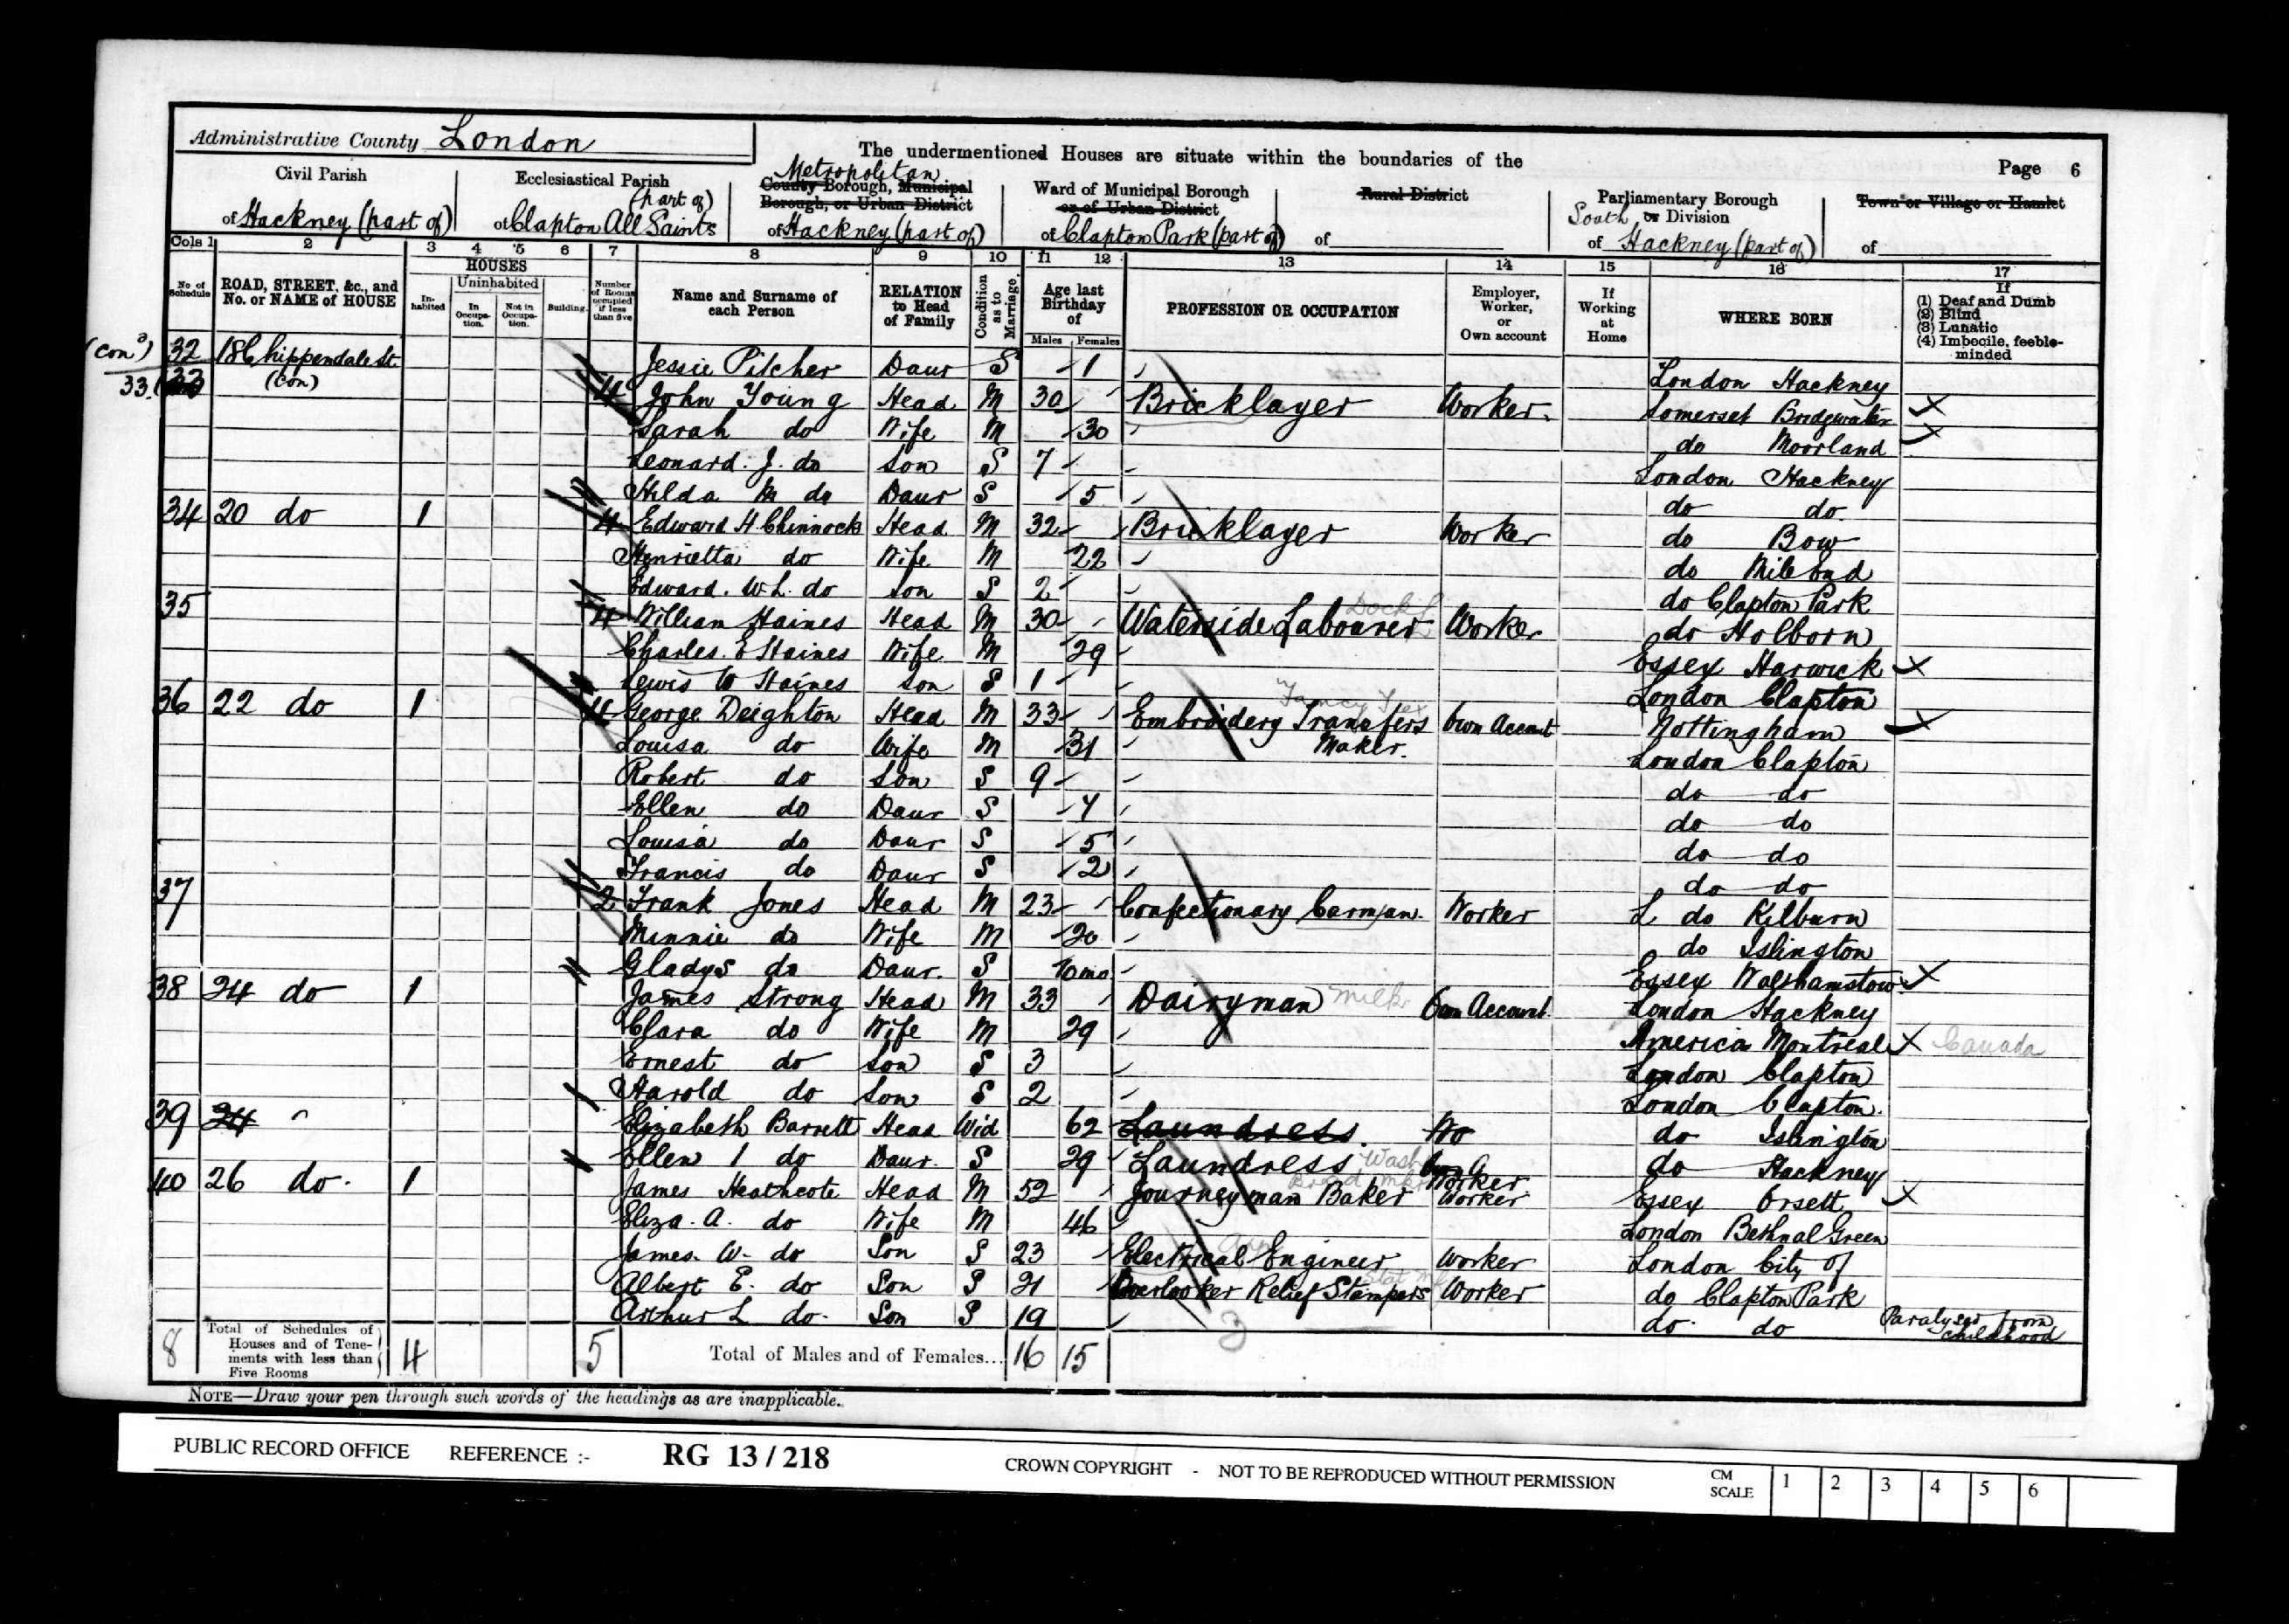 Administrative County London
The undermentioned Houses are situate within the boundaries of the
Page 6
Civil Parish
of Hackney (part of)
Ecclesiastical Parish
(part of)
of Clapton All Saints
Metropolitan
County Borough, Municipal
Borough, or Urban District
of Hackney (part of)
Ward of Municipal Borough
or of Urban District
of Clapton Park (part of)
Rural District
of
Parliamentary Borough
South or Division
of Hackney (part of)
Town or Village or Hamlet
of
Cols 1 2 3 4 5 6 7 8 9 10 11 12 13 14 15 16 17
No of Schedule
ROAD, STREET, &c., and No. or NAME of HOUSE
HOUSES
Inhabited
Uninhabited
In Occupation.
Not in Occupation.
Building.
Number of Rooms occupied if less than five
Name and Surname of each Person
RELATION to Head of Family
Condition as to Marriage.
Age last Birthday of
Males Females
PROFESSION OR OCCUPATION
Employer, Worker, or Own account
If Working at Home
WHERE BORN
If
(1) Deaf and Dumb
(2) Blind
(3) Lunatic
(4) Imbecile, feeble-minded
(Con d) 32 18 Chippendale St. Jessie Pilcher Daur S 1 London Hackney
33 (Con) 4 John Young Head M 30 Bricklayer Worker Somerset Bridgwater
Sarah do Wife M 30 do Moorland
Leonard. J. do Son S 7 London Hackney
Hilda M do Daur S 5 do do
34 20 do 1 4 Edward H Chinnock Head M 32 Bricklayer Worker do Bow
Henrietta do Wife M 22 do Mile End
Edward. W. L. do Son S 2 do Clapton Park
35 4 William Staines Head M 30 Waterside Labourer Dock L Worker do Holborn
Charles. E Staines Wife M 29 Essex Harwick
Lewis W Staines Son S 1 London Clapton
36 22 do 1 4 George Deighton Head M 33 Embroidery Transfers Own Account Nottingham
Louisa do Wife M 31 Maker. London Clapton
Robert do Son S 9 do do
Ellen do Daur S 7 do do
Louisa do Daur S 5 do do
Francis do Daur S 2 do do
37 2 Frank Jones Head M 23 Confectionary Carman. Worker L do Kilburn
Minnie do Wife M 20 do Islington
Gladys do Daur. S 10 mo Essex Walthamstow
38 24 do 1 James Strong Head M 33 Dairyman Milk Own Account London Hackney
Clara do Wife M 29 America Montreal Canada
Ernest do Son S 3 London Clapton
Harold do Son S 2 London Clapton.
39 24 Elizabeth Barrett Head Wid 62 Laundress. Wo do Islington
Ellen I do Daur. S 29 Laundress Wash Worker do Hackney
40 26 do. 1 James Heathcote Head M 52 Journeyman Baker Bread Worker Essex Orsett
Eliza. A. do Wife M 46 London Bethnal Green
James. W. do Son S 23 Electrical Engineer Worker London City of
Albert E. do Son S 21 Overlooker Relief Stampers Worker do Clapton Park
Arthur L do. Son S 19 do do Paralysed from childhood
8 Total of Schedules of Houses and of Tenements with less than Five Rooms 4 5 Total of Males and of Females... 16 15
NOTE—Draw your pen through such words of the headings as are inapplicable.
PUBLIC RECORD OFFICE REFERENCE :- RG 13 / 218 CROWN COPYRIGHT - NOT TO BE REPRODUCED WITHOUT PERMISSION CM SCALE 1 2 3 4 5 6